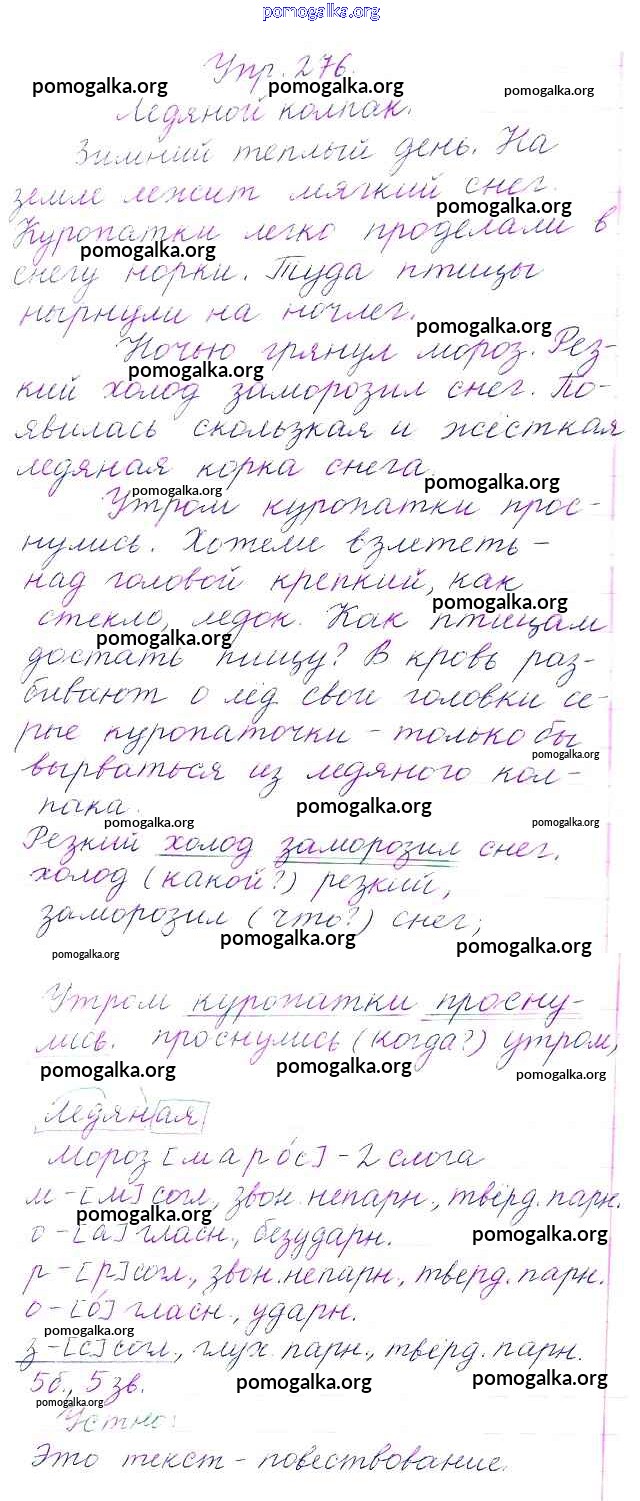 pomogalka.org
Упр. 276.
pomogalka.org pomogalka.org pomogalka.org
Ледяной колпак.
Зимний теплый день. На
земле лежит мягкий снег.
pomogalka.org
Куропатки легко проделали в
pomogalka.org
снегу норки. Туда птицы
нырнули на ночлег.
pomogalka.org
Ночью грянул мороз. Рез-
pomogalka.org
кий холод заморозил снег. По-
явилась скользкая и жёсткая
ледяная корка снега.
pomogalka.org pomogalka.org
Утром куропатки прос-
нулись. Хотели взлететь –
над головой крепкий, как
pomogalka.org
стекло, ледок. Как птицам
pomogalka.org
достать пищу? В кровь раз-
бивают о лёд свои головки се-
рые куропаточки – только бы
pomogalka.org
вырваться из ледяного кол-
пака.
pomogalka.org
pomogalka.org pomogalka.org
Резкий холод заморозил снег.
холод (какой?) резкий,
заморозил (что?) снег;
pomogalka.org pomogalka.org
pomogalka.org
Утром куропатки просну-
лись. проснулись (когда?) утром,
pomogalka.org pomogalka.org pomogalka.org
Ледяная
Мороз [марóс] – 2 слога
м – [м] согл., звон. непарн., твёрд. парн.
pomogalka.org
о – [а] гласн., безударн.
pomogalka.org
р – [р] согл., звон. непарн., тверд. парн.
о – [ó] гласн., ударн.
pomogalka.org
з – [с] согл., глух. парн., твёрд. парн.
5б., 5 зв.
pomogalka.org pomogalka.org
pomogalka.org
Устно:
Это текст – повествование.